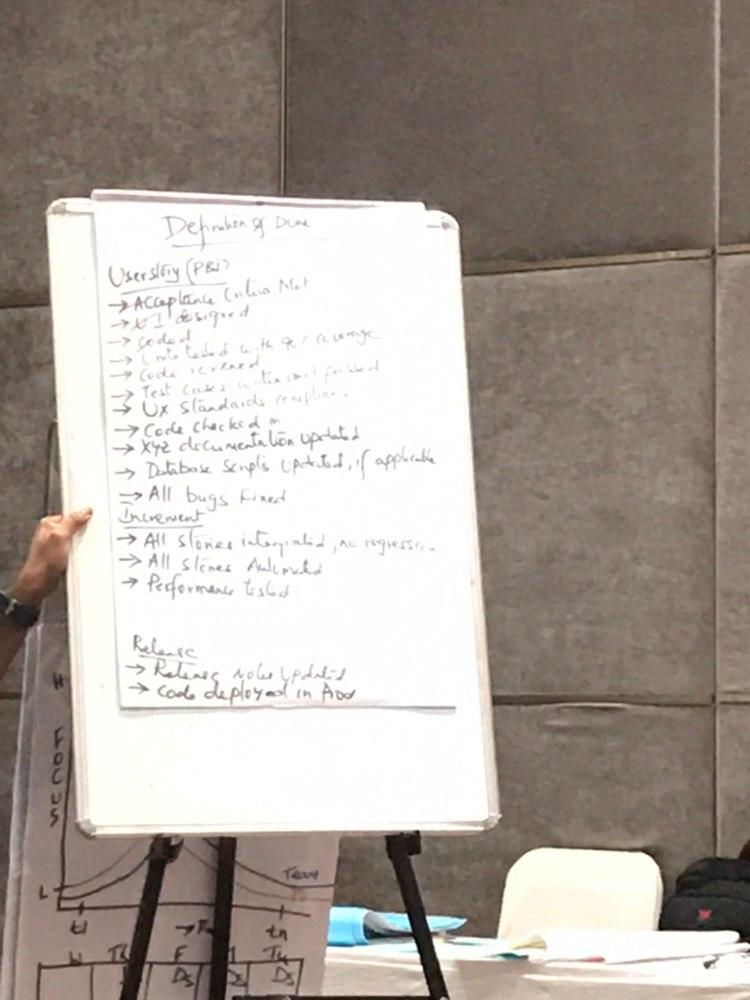 Definition of Done
Userstory (PBI)
→ Acceptance Criteria Met
→ UI designed
→ Coded
→ Unit tested with coverage
→ Code reviewed
→ Test cases written and passed
→ UX Standards compliance
→ Code checked in
→ XYZ documentation updated
→ Database scripts updated, if applicable
→ All bugs Fixed
Increment
→ All stories integrated, no regression
→ All stories Automated
→ Performance tested
Release
→ Release notes updated
→ Code deployed in Prod
H
FOCUS
L
Team
t1
tn
W
Th
F
Tu
Ds
Ds
Ds